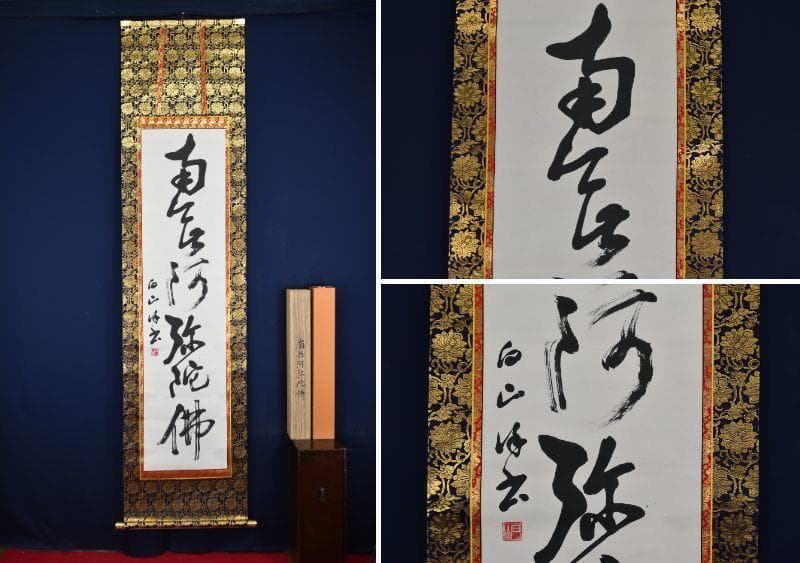 南無阿弥陀佛
白山 書
南無阿弥陀佛
南無
阿弥
白山 書